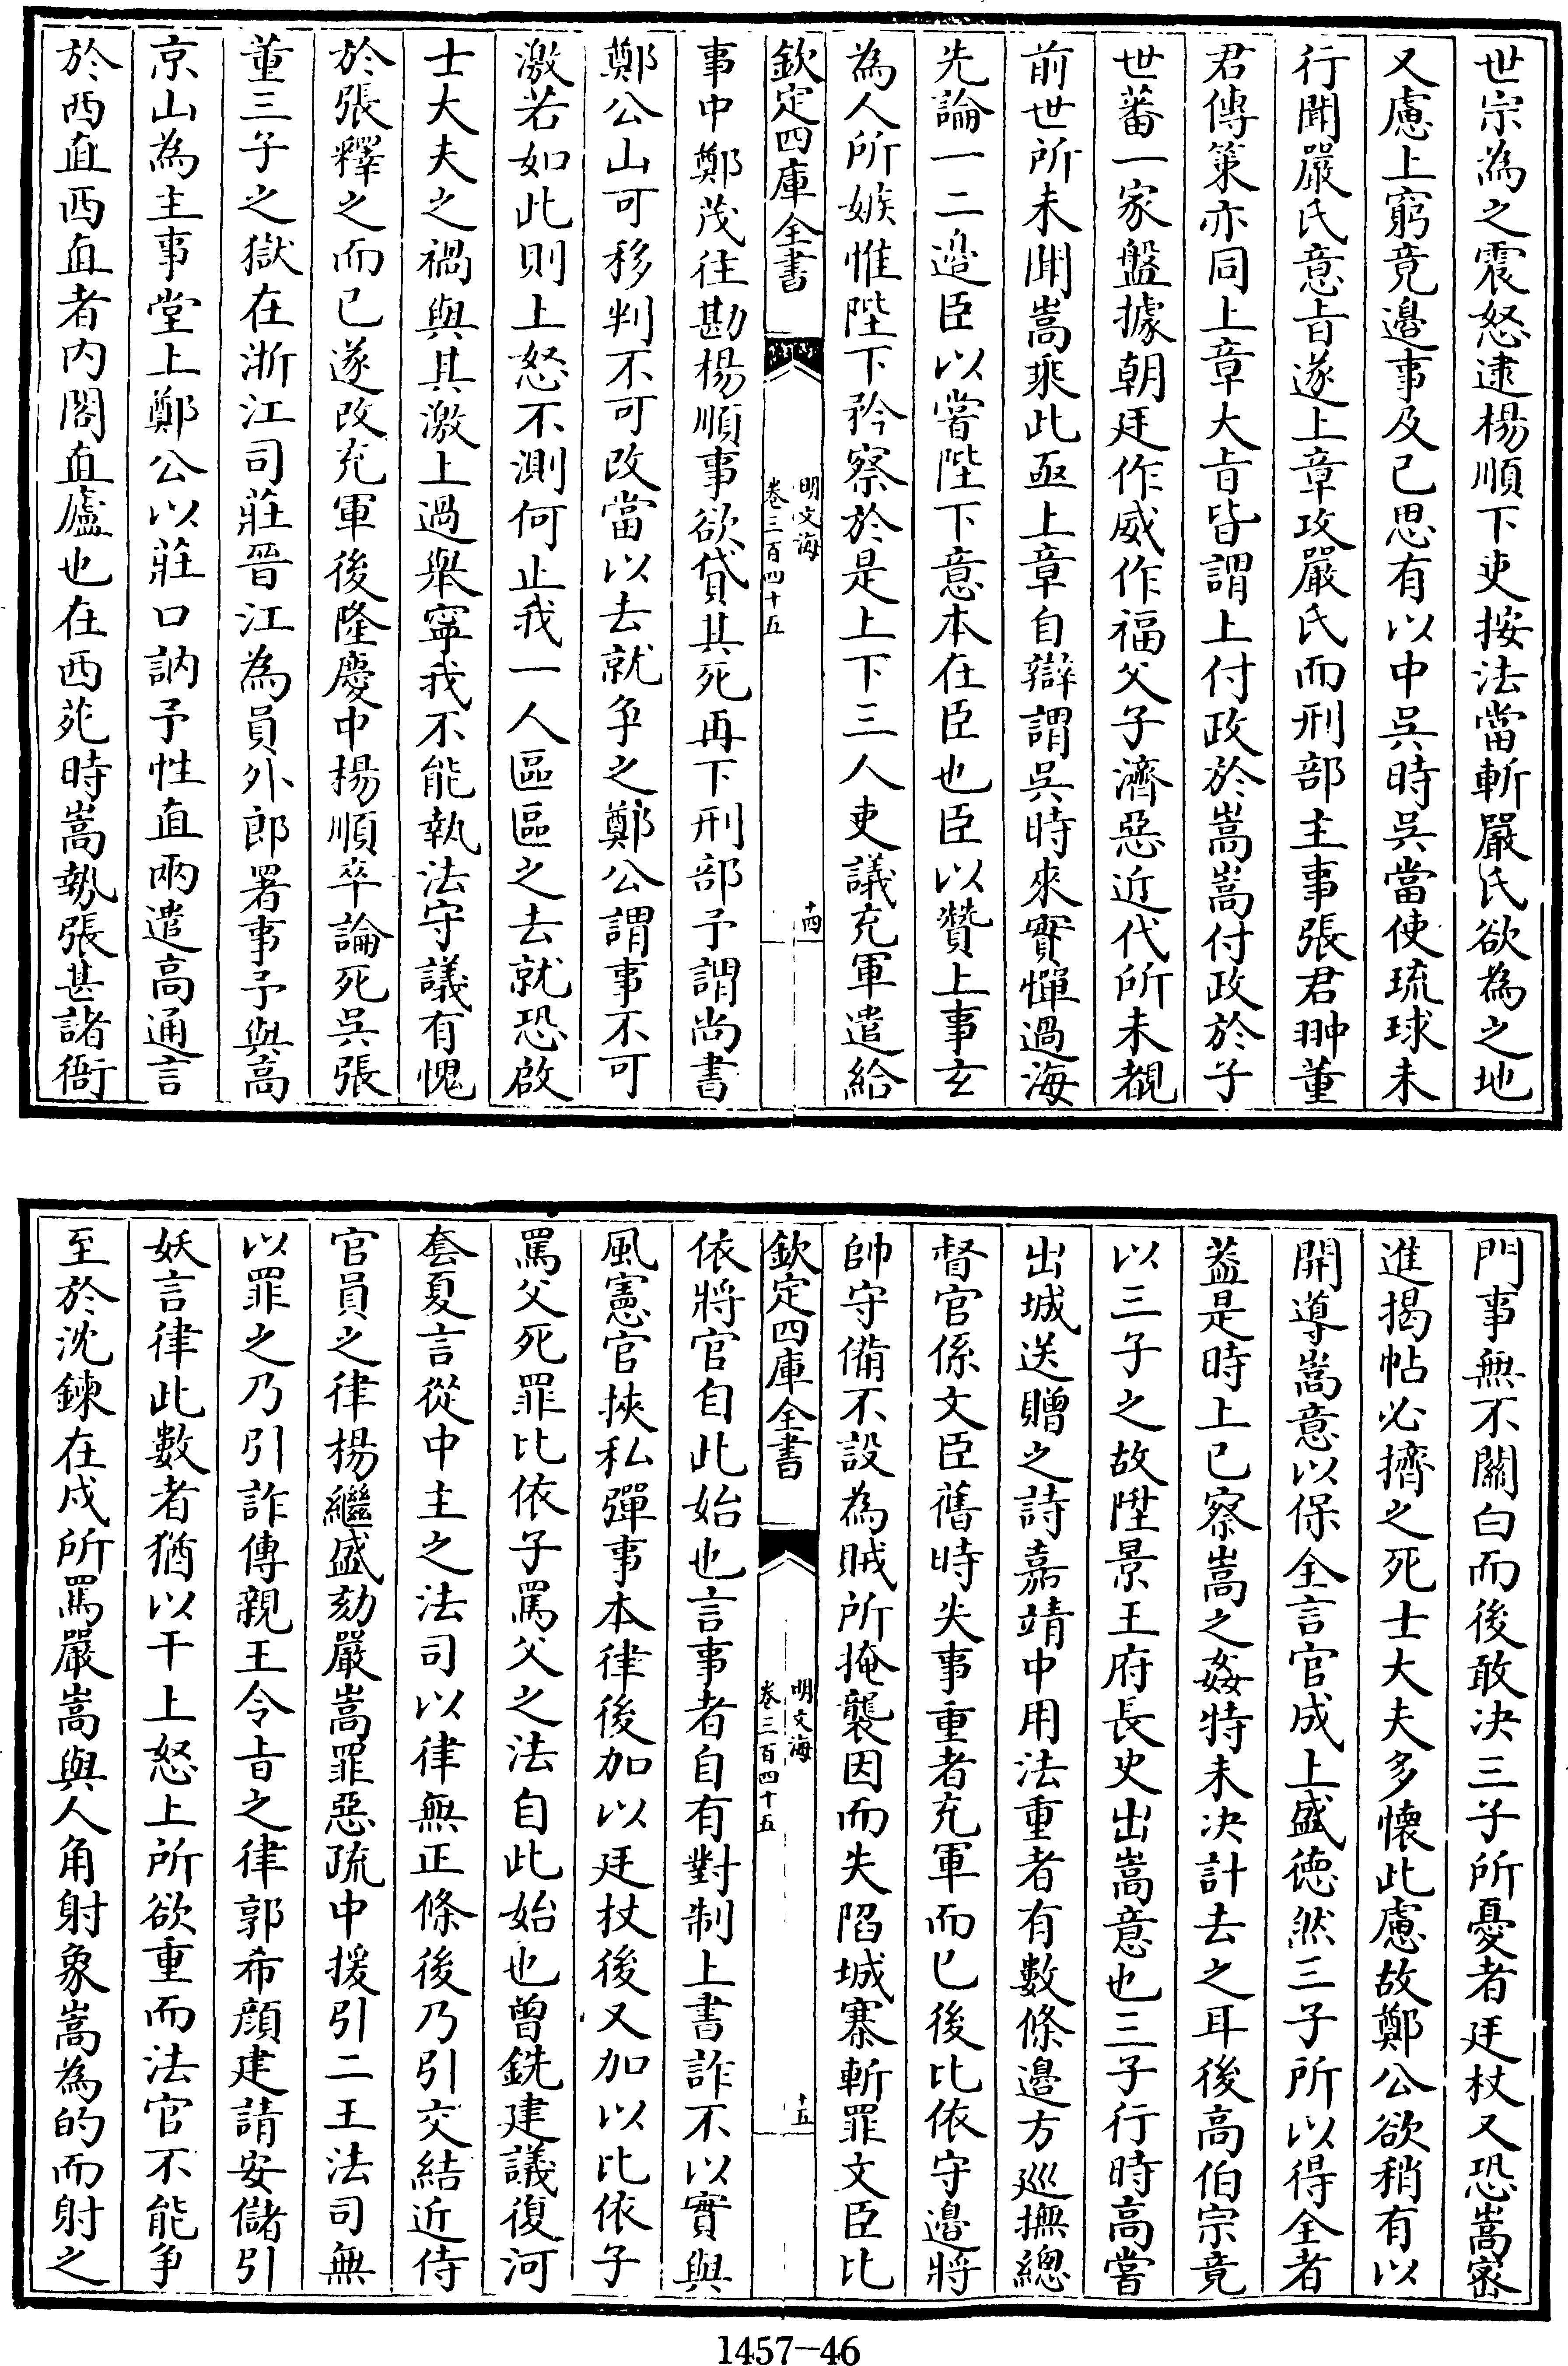 世宗為之震怒逮楊順下吏按法當斬嚴氏欲為之地
又慮上窮竟邊事及己思有以中吳時吳當使琉球未
行聞嚴氏意㫖遂上章攻嚴氏而刑部主事張君翀董
君傳策亦同上章大㫖皆謂上付政於嵩嵩付政於子
世蕃一家盤據朝廷作威作福父子濟惡近代所未覩
前世所未聞嵩乘此亟上章自辯謂吳時來實憚過海
先論一二邉臣以嘗陛下意本在臣也臣以贊上事玄
為人所嫉惟陛下矜察於是上下三人吏議充軍遣給
欽定四庫全書
明文海
卷三百四十五
十四
事中鄭茂往勘楊順事欲貸其死再下刑部予謂尚書
鄭公山可移判不可改當以去就争之鄭公謂事不可
激若如此則上怒不測何止我一人區區之去就恐啟
士大夫之禍與其激上過舉寜我不能執法守議有愧
於張釋之而已遂改充軍後隆慶中楊順卒論死吳張
董三子之獄在浙江司莊晉江為員外郎署事予與高
京山為主事堂上鄭公以莊口訥予性直兩遣高通言
於西直西直者内閣直廬也在西苑時嵩勢張甚諸衙
門事無不關白而後敢決三子所憂者廷杖又恐嵩密
進揭帖必擠之死士大夫多懐此慮故鄭公欲稍有以
開導嵩意以保全言官成上盛徳然三子所以得全者
葢是時上已察嵩之姦特未决計去之耳後高伯宗竟
以三子之故陞景王府長史出嵩意也三子行時高嘗
出城送贈之詩嘉靖中用法重者有數條邊方廵撫總
督官係文臣舊時失事重者充軍而已後比依守邉將
帥守備不設為賊所掩襲因而失陷城寨斬罪文臣比
欽定四庫全書
明文海
卷三百四十五
十五
依將官自此始也言事者自有對制上書詐不以實與
風憲官挾私彈事本律後加以廷杖後又加以比依子
罵父死罪比依子罵父之法自此始也曾銑建議復河
套夏言從中主之法司以律無正條後乃引交結近侍
官員之律楊繼盛劾嚴嵩罪惡疏中援引二王法司無
以罪之乃引詐傳親王令㫖之律郭希顔建請安儲引
妖言律此數者猶以干上怒上所欲重而法官不能争
至於沈鍊在戍所罵嚴嵩與人角射象嵩為的而射之
1457-46